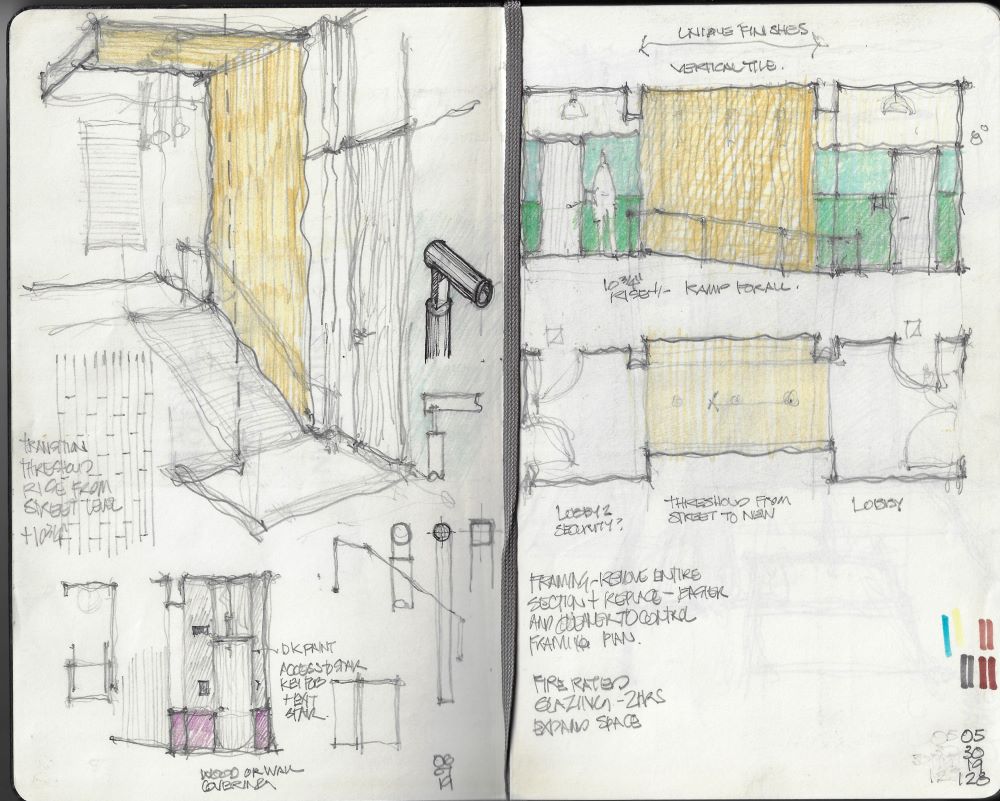 TRANSITION
THRESHOLD
RISE FROM
STREET LEVEL
+10 3/4"
DK PAINT
ACCESS STAIR
KEY FOB
+ EXIT
STAIR
WOOD OR WALL
COVERING
19
UNIQUE FINISHES
VERTICAL TILE.
10 3/4"
RISE +/- RAMP FOR ALL.
LOBBY 2
SECURITY?
THRESHOLD FROM
STREET TO NEW
LOBBY
FRAMING - REMOVE ENTIRE
SECTION + REPLACE - EASIER
AND CLEANER TO CONTROL
FRAMING PLAN.
FIRE RATED
GLAZING - 2HRS
EXPAND SPACE
05
30
19
128